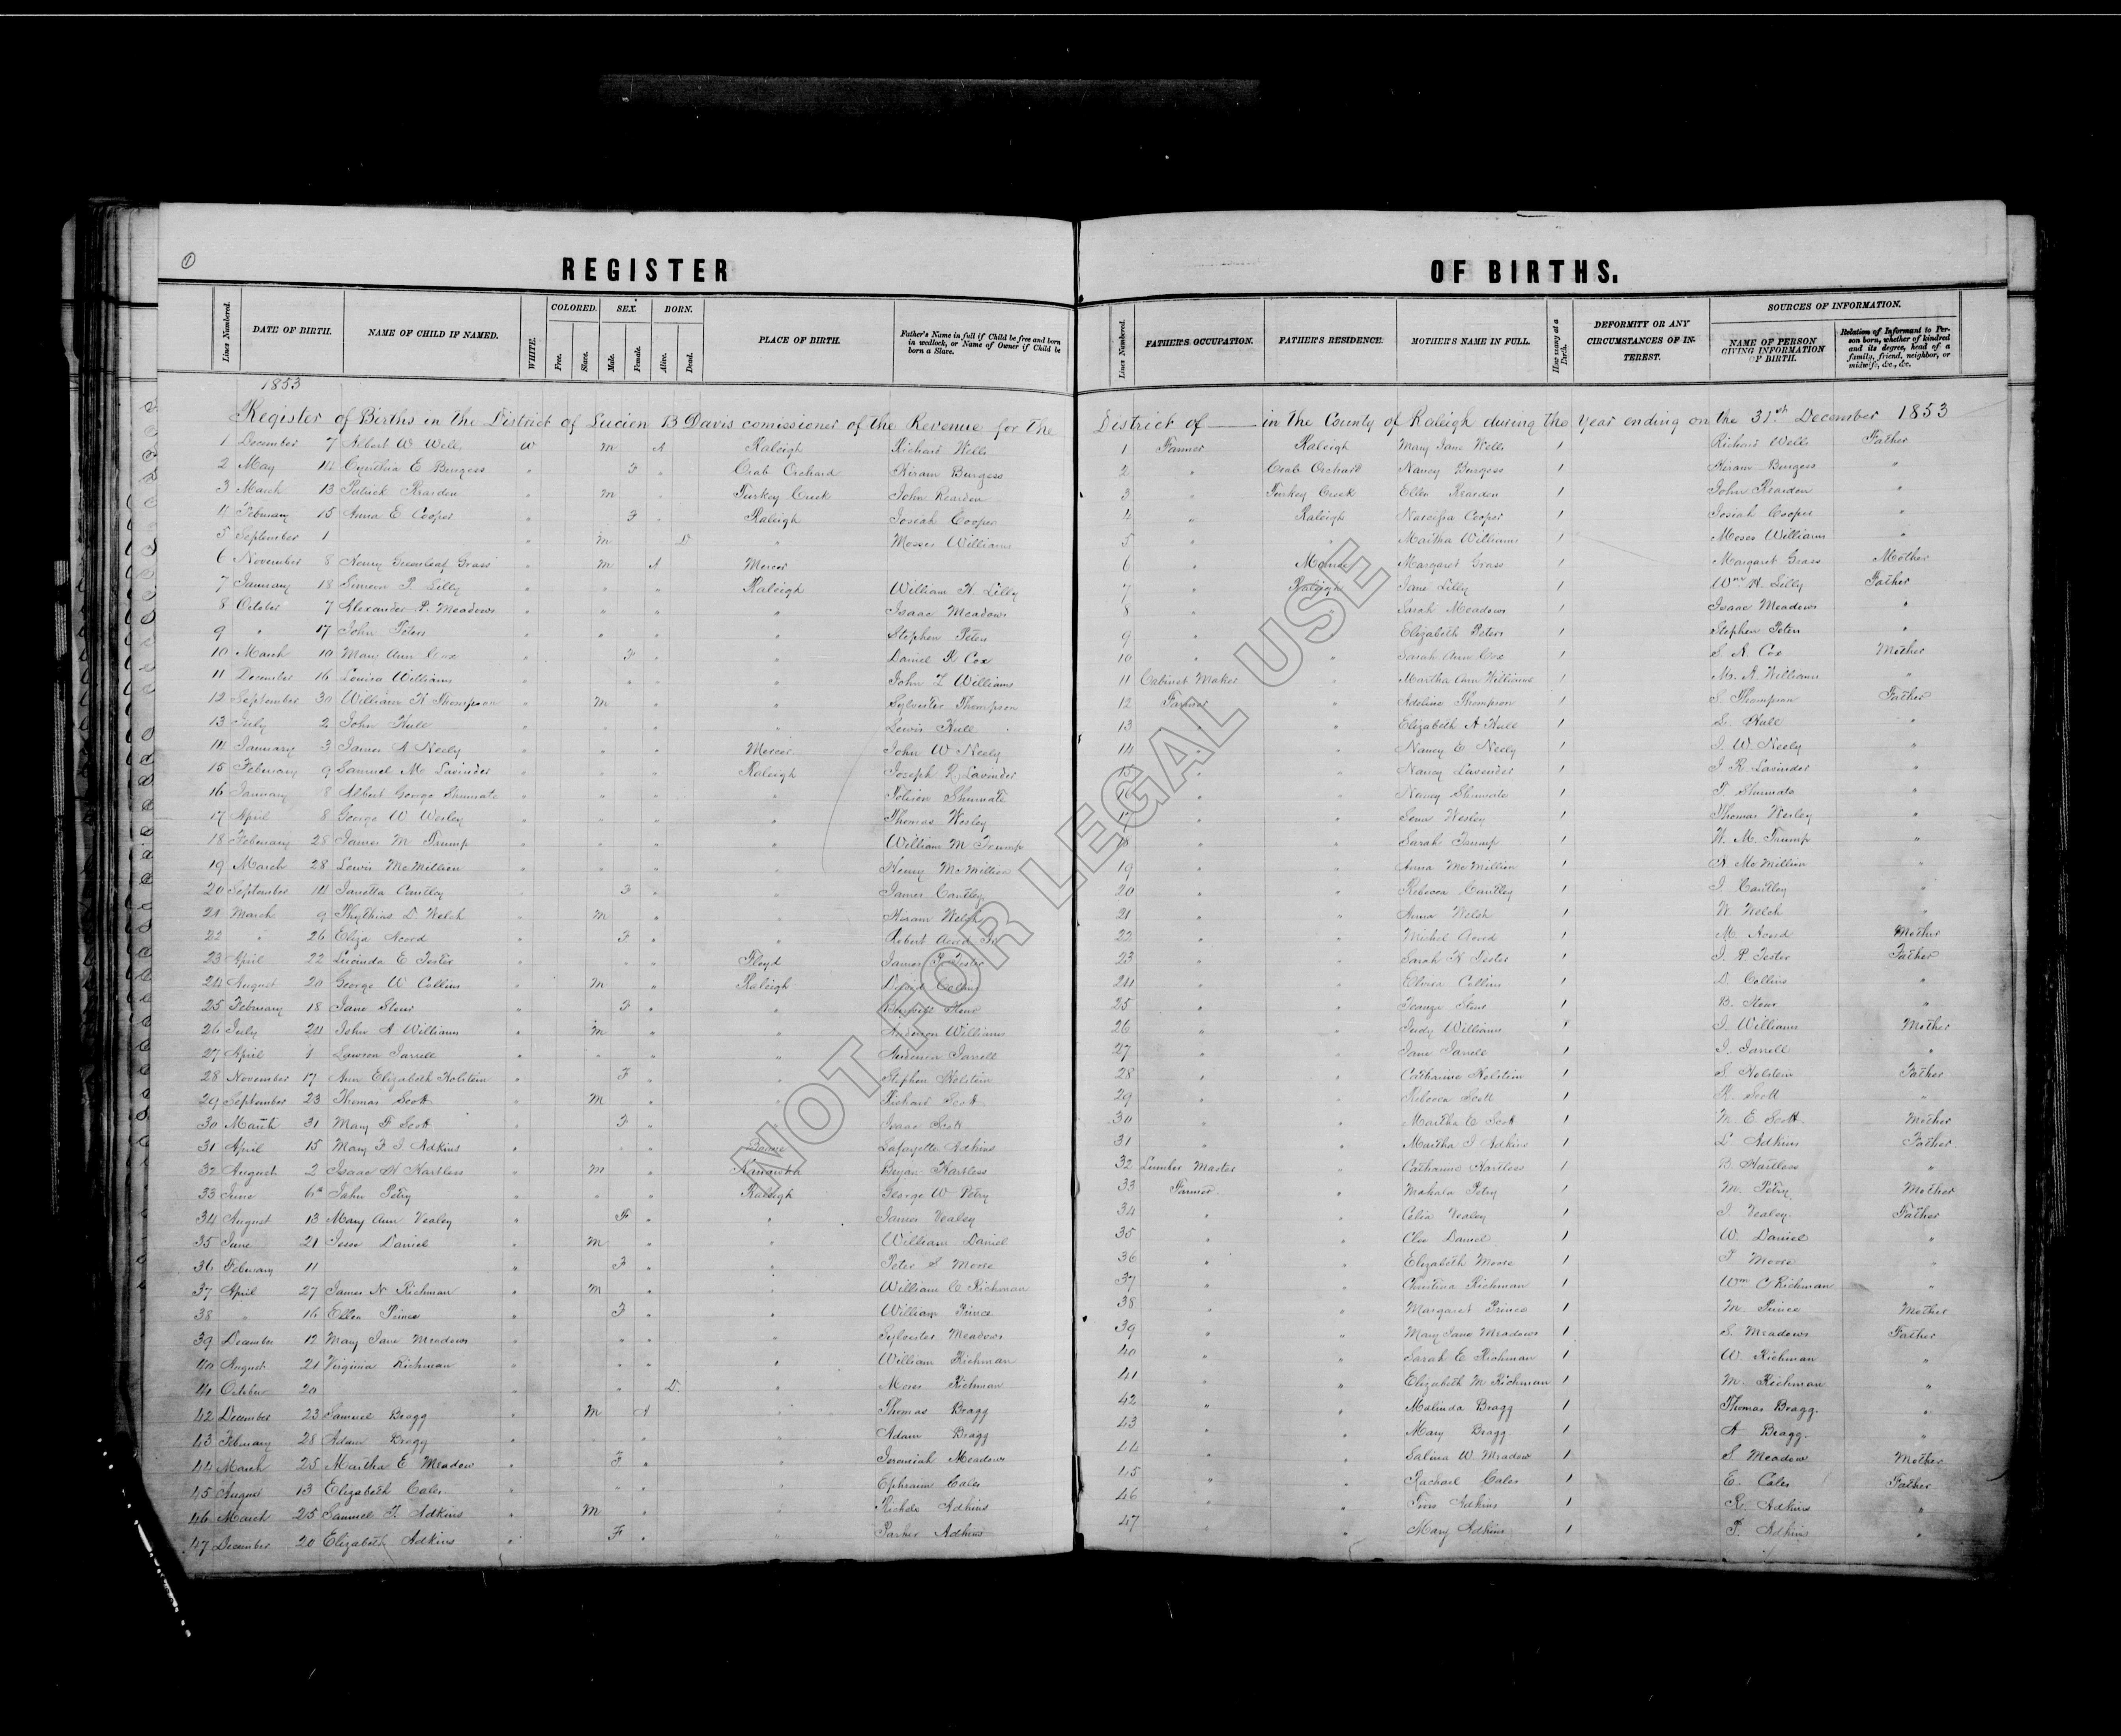 ①
REGISTER OF BIRTHS.
Lines Numbered. DATE OF BIRTH. NAME OF CHILD IF NAMED. WHITE. COLORED. Free. Slave. SEX. Male. Female. BORN. Alive. Dead. PLACE OF BIRTH. Father's Name in full if Child be free and born in wedlock, or Name of Owner if Child be born a Slave. Lines Numbered. FATHER'S OCCUPATION. FATHER'S RESIDENCE. MOTHER'S NAME IN FULL. How many at a Birth. DEFORMITY OR ANY CIRCUMSTANCES OF INTEREST. SOURCES OF INFORMATION. NAME OF PERSON GIVING INFORMATION OF BIRTH. Relation of Informant to Person born, whether of kindred and its degree, head of a family, friend, neighbor, or midwife, &c., &c.
1853
Register of Births in the District of Lucien B Davis comissioner of the Revenue for the District of — in the County of Raleigh during the Year ending on the 31st December 1853
1 December 7 Albert W Well W M A Raleigh Richard Wells 1 Farmer Raleigh Mary Jane Wells 1 Richard Wells Father
2 May 14 Cynthia E Burgess " F " Crab Orchard Hiram Burgess 2 " Crab Orchard Nancy Burgess 1 Hiram Burgess "
3 March 13 Patrick Rearden " M " Turkey Creek John Rearden 3 " Turkey Creek Ellen Rearden 1 John Rearden "
4 February 15 Anna E Cooper " F " Raleigh Josiah Cooper 4 " Raleigh Narcissa Cooper 1 Josiah Cooper "
5 September 1 " M D " Moses Williams 5 " " Martha Williams 1 Moses Williams "
6 November 8 Henry Greenleaf Grass " M A Mercer 6 " Margaret Grass 1 Margaret Grass Mother
7 January 18 Simeon P. Lilly " " " Raleigh William H Lilly 7 " Raleigh Jane Lilly 1 Wm H. Lilly Father
8 October 7 Alexander P. Meadows " " " " Isaac Meadows 8 " " Sarah Meadows 1 Isaac Meadows "
9 " 17 John Peters " " " " Stephen Peters 9 " " Elizabeth Peters 1 Stephen Peters "
10 March 10 Mary Ann Cox " F " " Daniel Cox 10 " " Sarah Ann Cox 1 S. A. Cox Mother
11 December 16 Louisa Williams " " " " John L Williams 11 Cabinet Maker " Martha Ann Williams 1 M. A. Williams "
12 September 30 William H Thompson " M " " Sylvester Thompson 12 Farmer " Adeline Thompson 1 S. Thompson Father
13 July 2 John Hull " " " " Lewis Hull 13 " " Elizabeth A Hull 1 L. Hull "
14 January 3 James A Neely " " " Mercer John W Neely 14 " " Nancy E Neely 1 J. W. Neely "
15 February 9 Samuel M Lavinder " " " Raleigh Joseph R Lavinder 15 " " Nancy Lavender 1 J. R. Lavinder "
16 January 8 Albert George Shumate " " " " Shumate 16 " " Nancy Shumate 1 Shumate "
17 April 8 George W Wesley " " " " Thomas Wesley 17 " " Wesley 1 Thomas Wesley "
18 February 28 James M Trump " " " " William M Trump 18 " " Sarah Trump 1 W. M. Trump "
19 March 28 Lewis McMillion " " " " Henry McMillion 19 " " Anna McMillion 1 H. McMillion "
20 September 14 Cantley " F " " James Cantley 20 " " Rebecca Cantley 1 J. Cantley "
21 March 9 D. Welch " M " " Hiram Welch 21 " " Anna Welsh 1 Welch "
22 " 26 Eliza Acord " F " " Robert Acord 22 " " Michel Acord 1 M. Acord Mother
23 April 22 Lucinda E Tester " " " Floyd James P. Tester 23 " " Sarah Tester 1 J. P. Tester Father
24 August 20 George W Collins " M " Raleigh Collins 24 " " Collins 1 D. Collins "
25 February 18 Jane " F " " 25 " " 1 B. "
26 July 24 John A Williams " M " " Anderson Williams 26 " " Judy Williams 1 J. Williams Mother
27 April 1 Lawson Jarrell " " " " Anderson Jarrell 27 " " Jane Jarrell 1 J. Jarrell "
28 November 17 Ann Elizabeth Holstein " F " " Stephen Holstein 28 " " Catharine Holstein 1 S. Holstein Father
29 September 23 Thomas Scott " M " " Richard Scott 29 " " Rebecca Scott 1 R. Scott "
30 March 31 Mary F Scott " F " " Isaac Scott 30 " " Martha E Scott 1 M. E. Scott Mother
31 April 15 Mary F. J. Adkins " " " Boone Lafayette Adkins 31 " " Martha J Adkins 1 L. Adkins Father
32 August 2 Isaac H Hartless " M " Kanawha Bryan Hartless 32 Lumber Master " Catharine Hartless 1 B. Hartless "
33 June 6 John Petry " " " Raleigh George W Petry 33 Farmer " Mahala Petry 1 M. Petry Mother
34 August 13 Mary Ann Vealey " F " " James Vealey 34 " " Celia Vealey 1 J. Vealey Father
35 June 21 Jesse Daniel " M " " William Daniel 35 " " Cloe Daniel 1 W. Daniel "
36 February 11 " F " " Peter S Moore 36 " " Elizabeth Moore 1 P. Moore "
37 April 27 James N Richman " M " " William C Richman 37 " " Christina Richman 1 Wm C Richman "
38 " 16 Ellen Prince " F " " William Prince 38 " " Margaret Prince 1 M. Prince Mother
39 December 12 Mary Jane Meadows " " " " Sylvester Meadows 39 " " Mary Jane Meadows 1 S. Meadows Father
40 August 21 Virginia Richman " " " " William Richman 40 " " Sarah E Richman 1 W. Richman "
41 October 20 " " D. " Moses Richman 41 " " Elizabeth M Richman 1 M. Richman "
42 December 23 Samuel Bragg " M A " Thomas Bragg 42 " " Malinda Bragg 1 Thomas Bragg. "
43 February 28 Adam Bragg " " " " Adam Bragg 43 " " Mary Bragg 1 A Bragg. "
44 March 25 Martha E Meadow " F " " Jeremiah Meadow 44 " " Salina W. Meadow 1 S. Meadow Mother
45 August 13 Elizabeth Cales " " " " Ephraim Cales 45 " " Rachael Cales 1 E. Cales Father
46 March 25 Samuel Adkins " M " " Adkins 46 " " Adkins 1 R. Adkins "
47 December 20 Elizabeth Adkins " F " " Parker Adkins 47 " " Mary Adkins 1 P. Adkins "
NOT FOR LEGAL USE